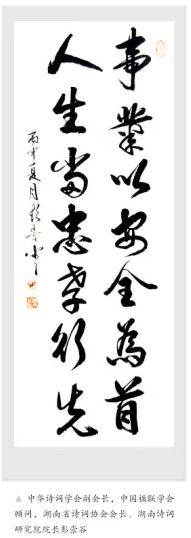 事業以安全為首
人生當忠孝行先
丙申夏月彭崇谷
▲ 中华诗词学会副会长，中国楹联学会
顾问，湖南省诗词协会会长、湖南诗词
研究院院长彭崇谷